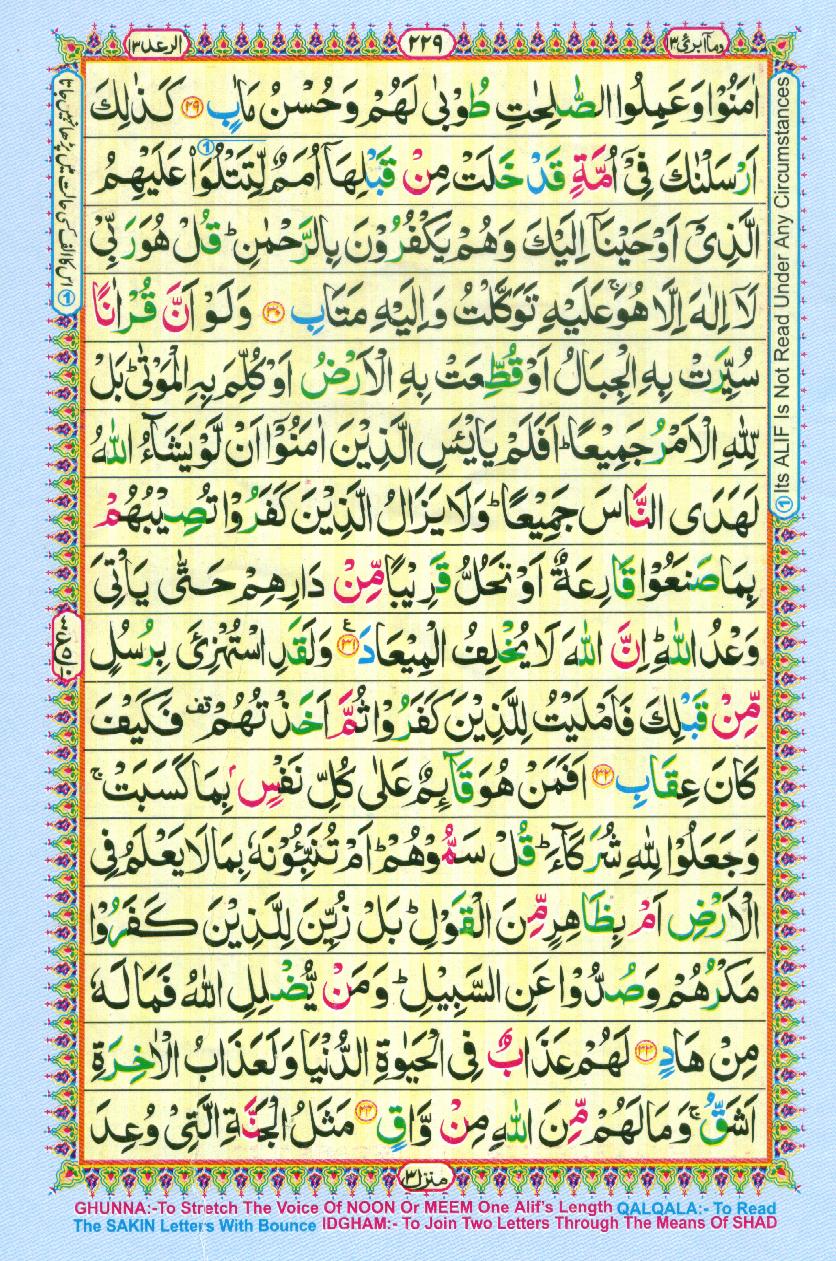 الرعد ١٣
٢٢٩
وما ابرئ ١٣
اٰمَنُوْا وَعَمِلُوا الصّٰلِحٰتِ طُوْبٰى لَهُمْ وَحُسْنُ مَاٰبٍ ﴿۲۹﴾ كَذٰلِكَ
اَرْسَلْنٰكَ فِىْۤ اُمَّةٍ قَدْ خَلَتْ مِنْ قَبْلِهَاۤ اُمَمٌ لِّتَتْلُوَا۟ عَلَيْهِمُ
الَّذِىْۤ اَوْحَيْنَاۤ اِلَيْكَ وَهُمْ يَكْفُرُوْنَ بِالرَّحْمٰنِ ؕ قُلْ هُوَ رَبِّىْ
لَاۤ اِلٰهَ اِلَّا هُوَ ۚ عَلَيْهِ تَوَكَّلْتُ وَاِلَيْهِ مَتَابِ ﴿۳۰﴾ وَلَوْ اَنَّ قُرْاٰنًا
سُيِّرَتْ بِهِ الْجِبَالُ اَوْ قُطِّعَتْ بِهِ الْاَرْضُ اَوْ كُلِّمَ بِهِ الْمَوْتٰى ؕ بَلْ
لِّلّٰهِ الْاَمْرُ جَمِيْعًا ؕ اَفَلَمْ يَايْـَٔسِ الَّذِيْنَ اٰمَنُوْۤا اَنْ لَّوْ يَشَآءُ اللّٰهُ
لَهَدَى النَّاسَ جَمِيْعًا ؕ وَلَا يَزَالُ الَّذِيْنَ كَفَرُوْا تُصِيْبُهُمْ
بِمَا صَنَعُوْا قَارِعَةٌ اَوْ تَحُلُّ قَرِيْبًا مِّنْ دَارِهِمْ حَتّٰى يَاْتِىَ
وَعْدُ اللّٰهِ ؕ اِنَّ اللّٰهَ لَا يُخْلِفُ الْمِيْعَادَ ﴿۳۱﴾ ع وَلَقَدِ اسْتُهْزِئَ بِرُسُلٍ
مِّنْ قَبْلِكَ فَاَمْلَيْتُ لِلَّذِيْنَ كَفَرُوْا ثُمَّ اَخَذْتُهُمْ قف فَكَيْفَ
كَانَ عِقَابِ ﴿۳۲﴾ اَفَمَنْ هُوَ قَآئِمٌ عَلٰى كُلِّ نَفْسٍۭ بِمَا كَسَبَتْ ۚ
وَجَعَلُوْا لِلّٰهِ شُرَكَآءَ ؕ قُلْ سَمُّوْهُمْ ؕ اَمْ تُنَبِّـُٔوْنَهٗ بِمَا لَا يَعْلَمُ فِى
الْاَرْضِ اَمْ بِظَاهِرٍ مِّنَ الْقَوْلِ ؕ بَلْ زُيِّنَ لِلَّذِيْنَ كَفَرُوْا
مَكْرُهُمْ وَصُدُّوْا عَنِ السَّبِيْلِ ؕ وَمَنْ يُّضْلِلِ اللّٰهُ فَمَا لَهٗ
مِنْ هَادٍ ﴿۳۳﴾ لَهُمْ عَذَابٌ فِى الْحَيٰوةِ الدُّنْيَا وَلَعَذَابُ الْاٰخِرَةِ
اَشَقُّ ۚ وَمَا لَهُمْ مِّنَ اللّٰهِ مِنْ وَّاقٍ ﴿۳۴﴾ مَثَلُ الْجَنَّةِ الَّتِىْ وُعِدَ
① Its ALIF Is Not Read Under Any Circumstances
منزل ٣
GHUNNA:-To Stretch The Voice Of NOON Or MEEM One Alif's Length QALQALA:- To Read
The SAKIN Letters With Bounce IDGHAM:- To Join Two Letters Through The Means Of SHAD